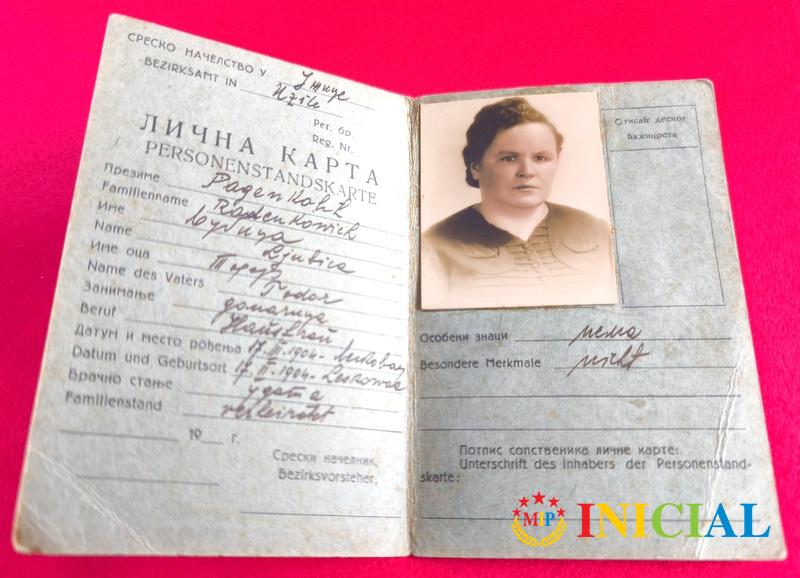 СРЕСКО НАЧЕЛСТВО У Ужице
BEZIRKSAMT IN Užice
Рег. бр.
Reg. Nr.
ЛИЧНА КАРТА
PERSONENSTANDSKARTE
Презиме
Familienname Radenkowich
Име Љубица
Name Ljubica
Име оца Тодор
Name des Vaters Todor
Занимање домаћица
Beruf Hausfrau
Датум и место рођења 17. II. 1904.
Datum und Geburtsort 17. II. 1904.
Брачно стање удата
Familienstand verheiratet
19 г.
Срески начелник,
Bezirksvorsteher,
Отисак десног
кажипрста
Особени знаци нема
Besondere Merkmale nicht
Потпис сопственика личне карте:
Unterschrift des Inhabers der Personenstand-
skarte:
MIP INICIAL